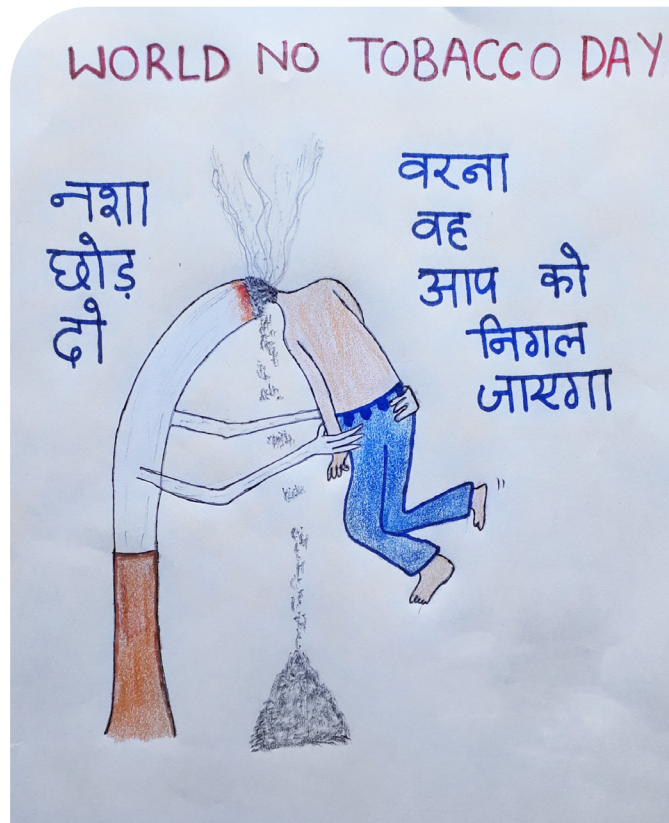 WORLD NO TOBACCO DAY
नशा
छोड़
दो
वरना
वह
आप को
निगल
जाएगा